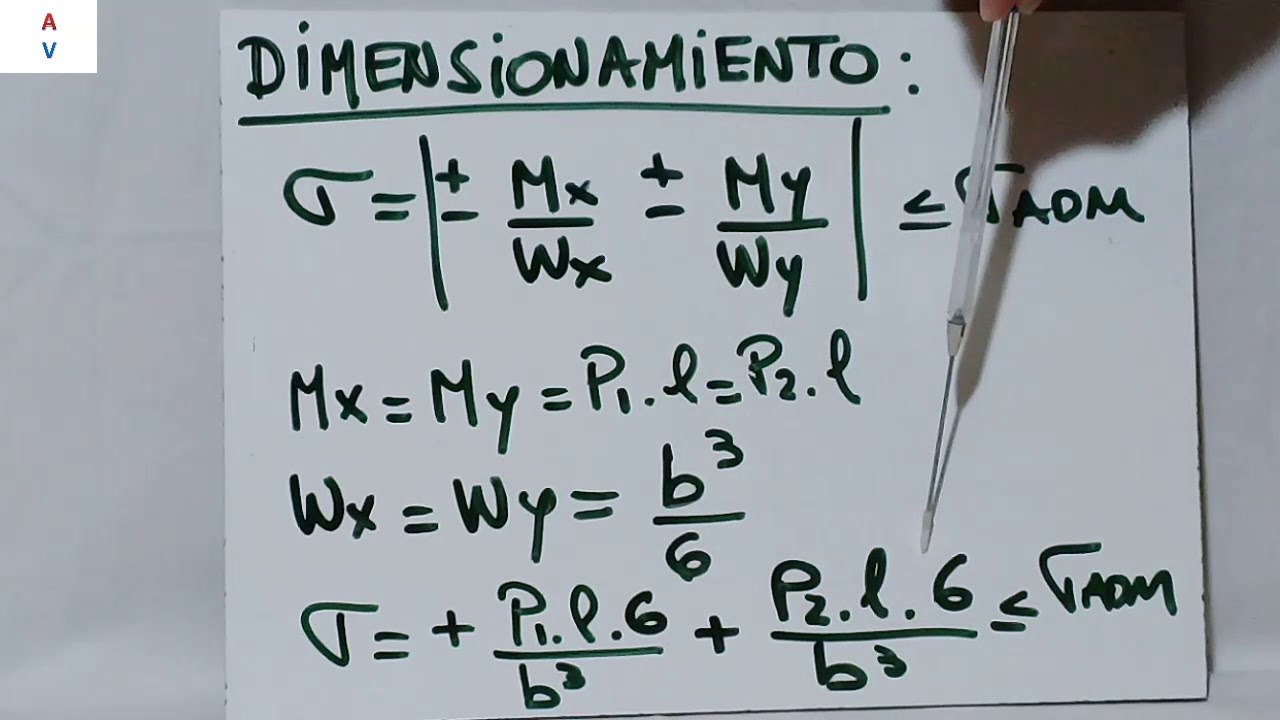 A
V
DIMENSIONAMIENTO:
σ = | ± Mx/Wx ± My/Wy | ≤ σADM
Mx = My = P₁.l = P₂.l
Wx = Wy = b³/6
σ = + P₁.l.6/b³ + P₂.l.6/b³ ≤ σADM